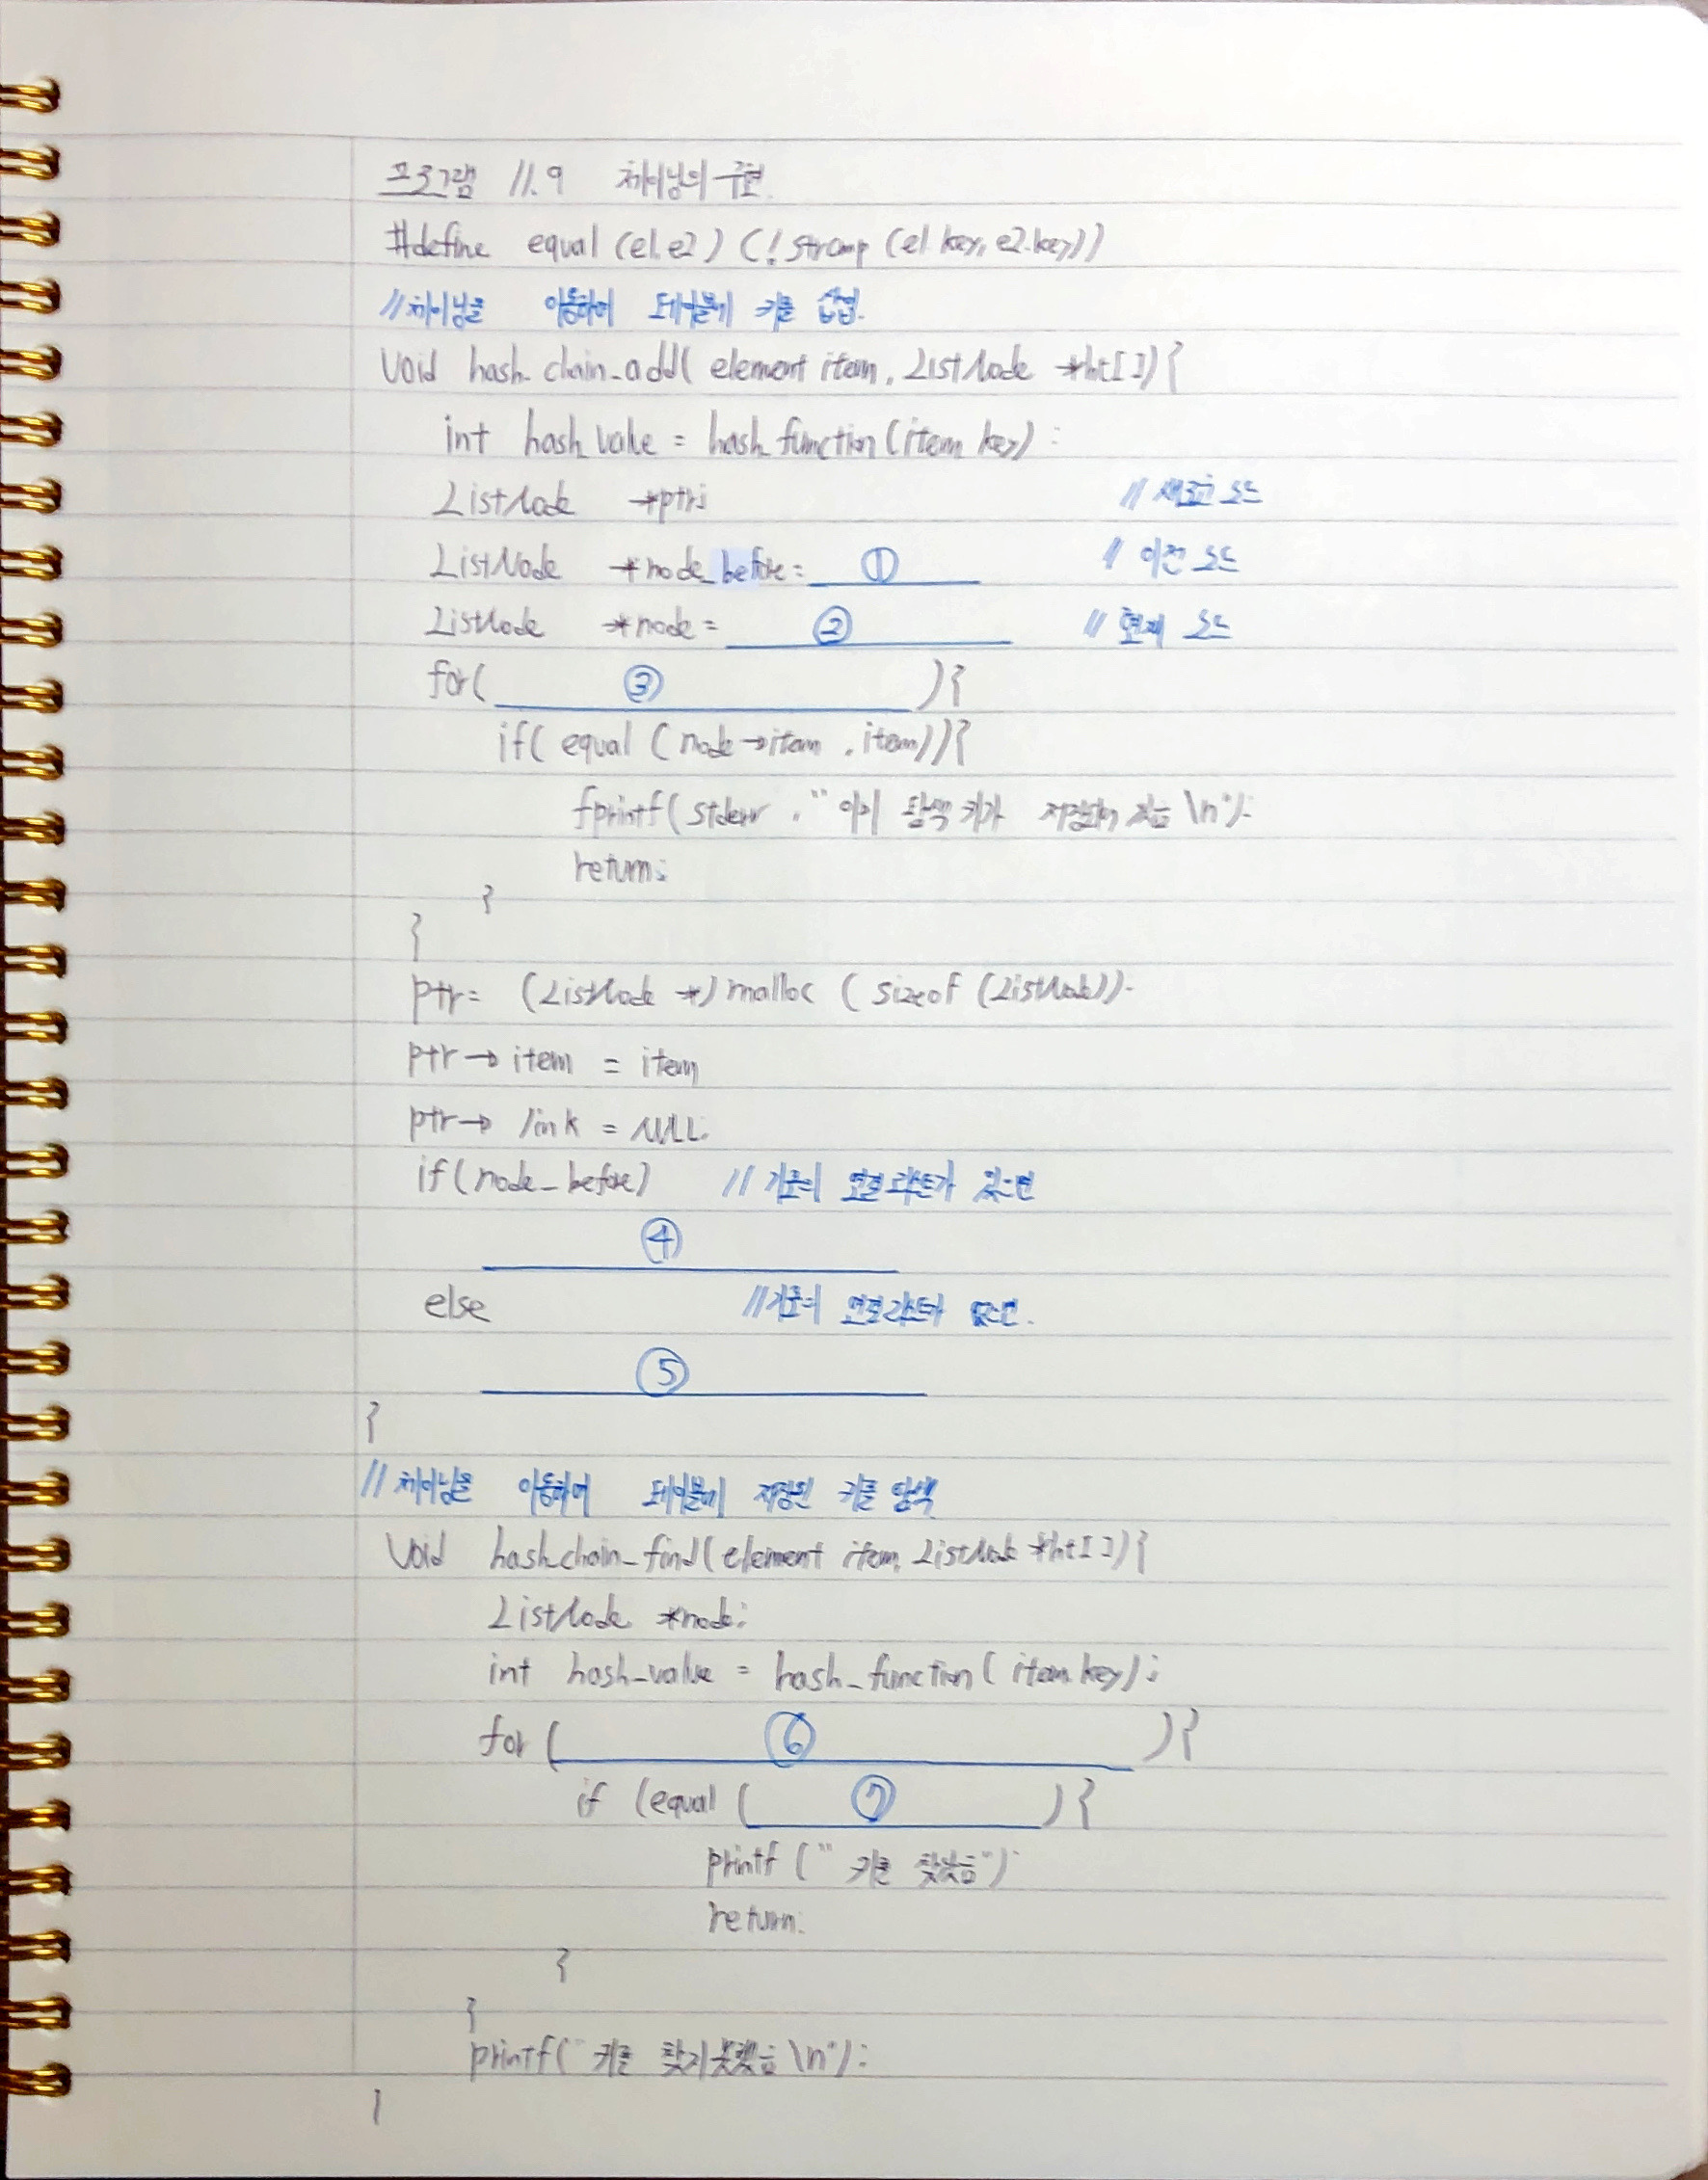 프로그램 11.9 체이닝의 구현.
#define equal (e1.e2) (! strcmp (e1.key, e2.key))
//체이닝을 이용하여 테이블에 키를 삽입.
void hash_chain_add( element item, ListNode *ht[ ]){
int hash_value = hash_function(item.key);
ListNode *ptr; // 새로운 노드
ListNode *node_before= ① // 이전 노드
ListNode *node= ② // 현재 노드
for( ③ ){
if( equal (node→item , item)){
fprintf( stderr , " 이미 탐색 키가 저장되어 있음 \n");
return;
}
}
ptr= (ListNode *) malloc ( sizeof (ListNode));
ptr→ item = item
ptr→ link = NULL;
if(node_before) // 기존의 연결 리스트가 있으면
④
else //기존의 연결리스트가 없으면.
⑤
}
// 체이닝을 이용하여 테이블에 저장된 키를 탐색
void hash_chain_find(element item, ListNode *ht[ ]){
ListNode *node;
int hash_value = hash_function( item.key);
for ( ⑥ ){
if (equal ( ⑦ ) {
printf (" 키를 찾았음")
return;
}
}
printf(" 키를 찾지못했음 \n");
}